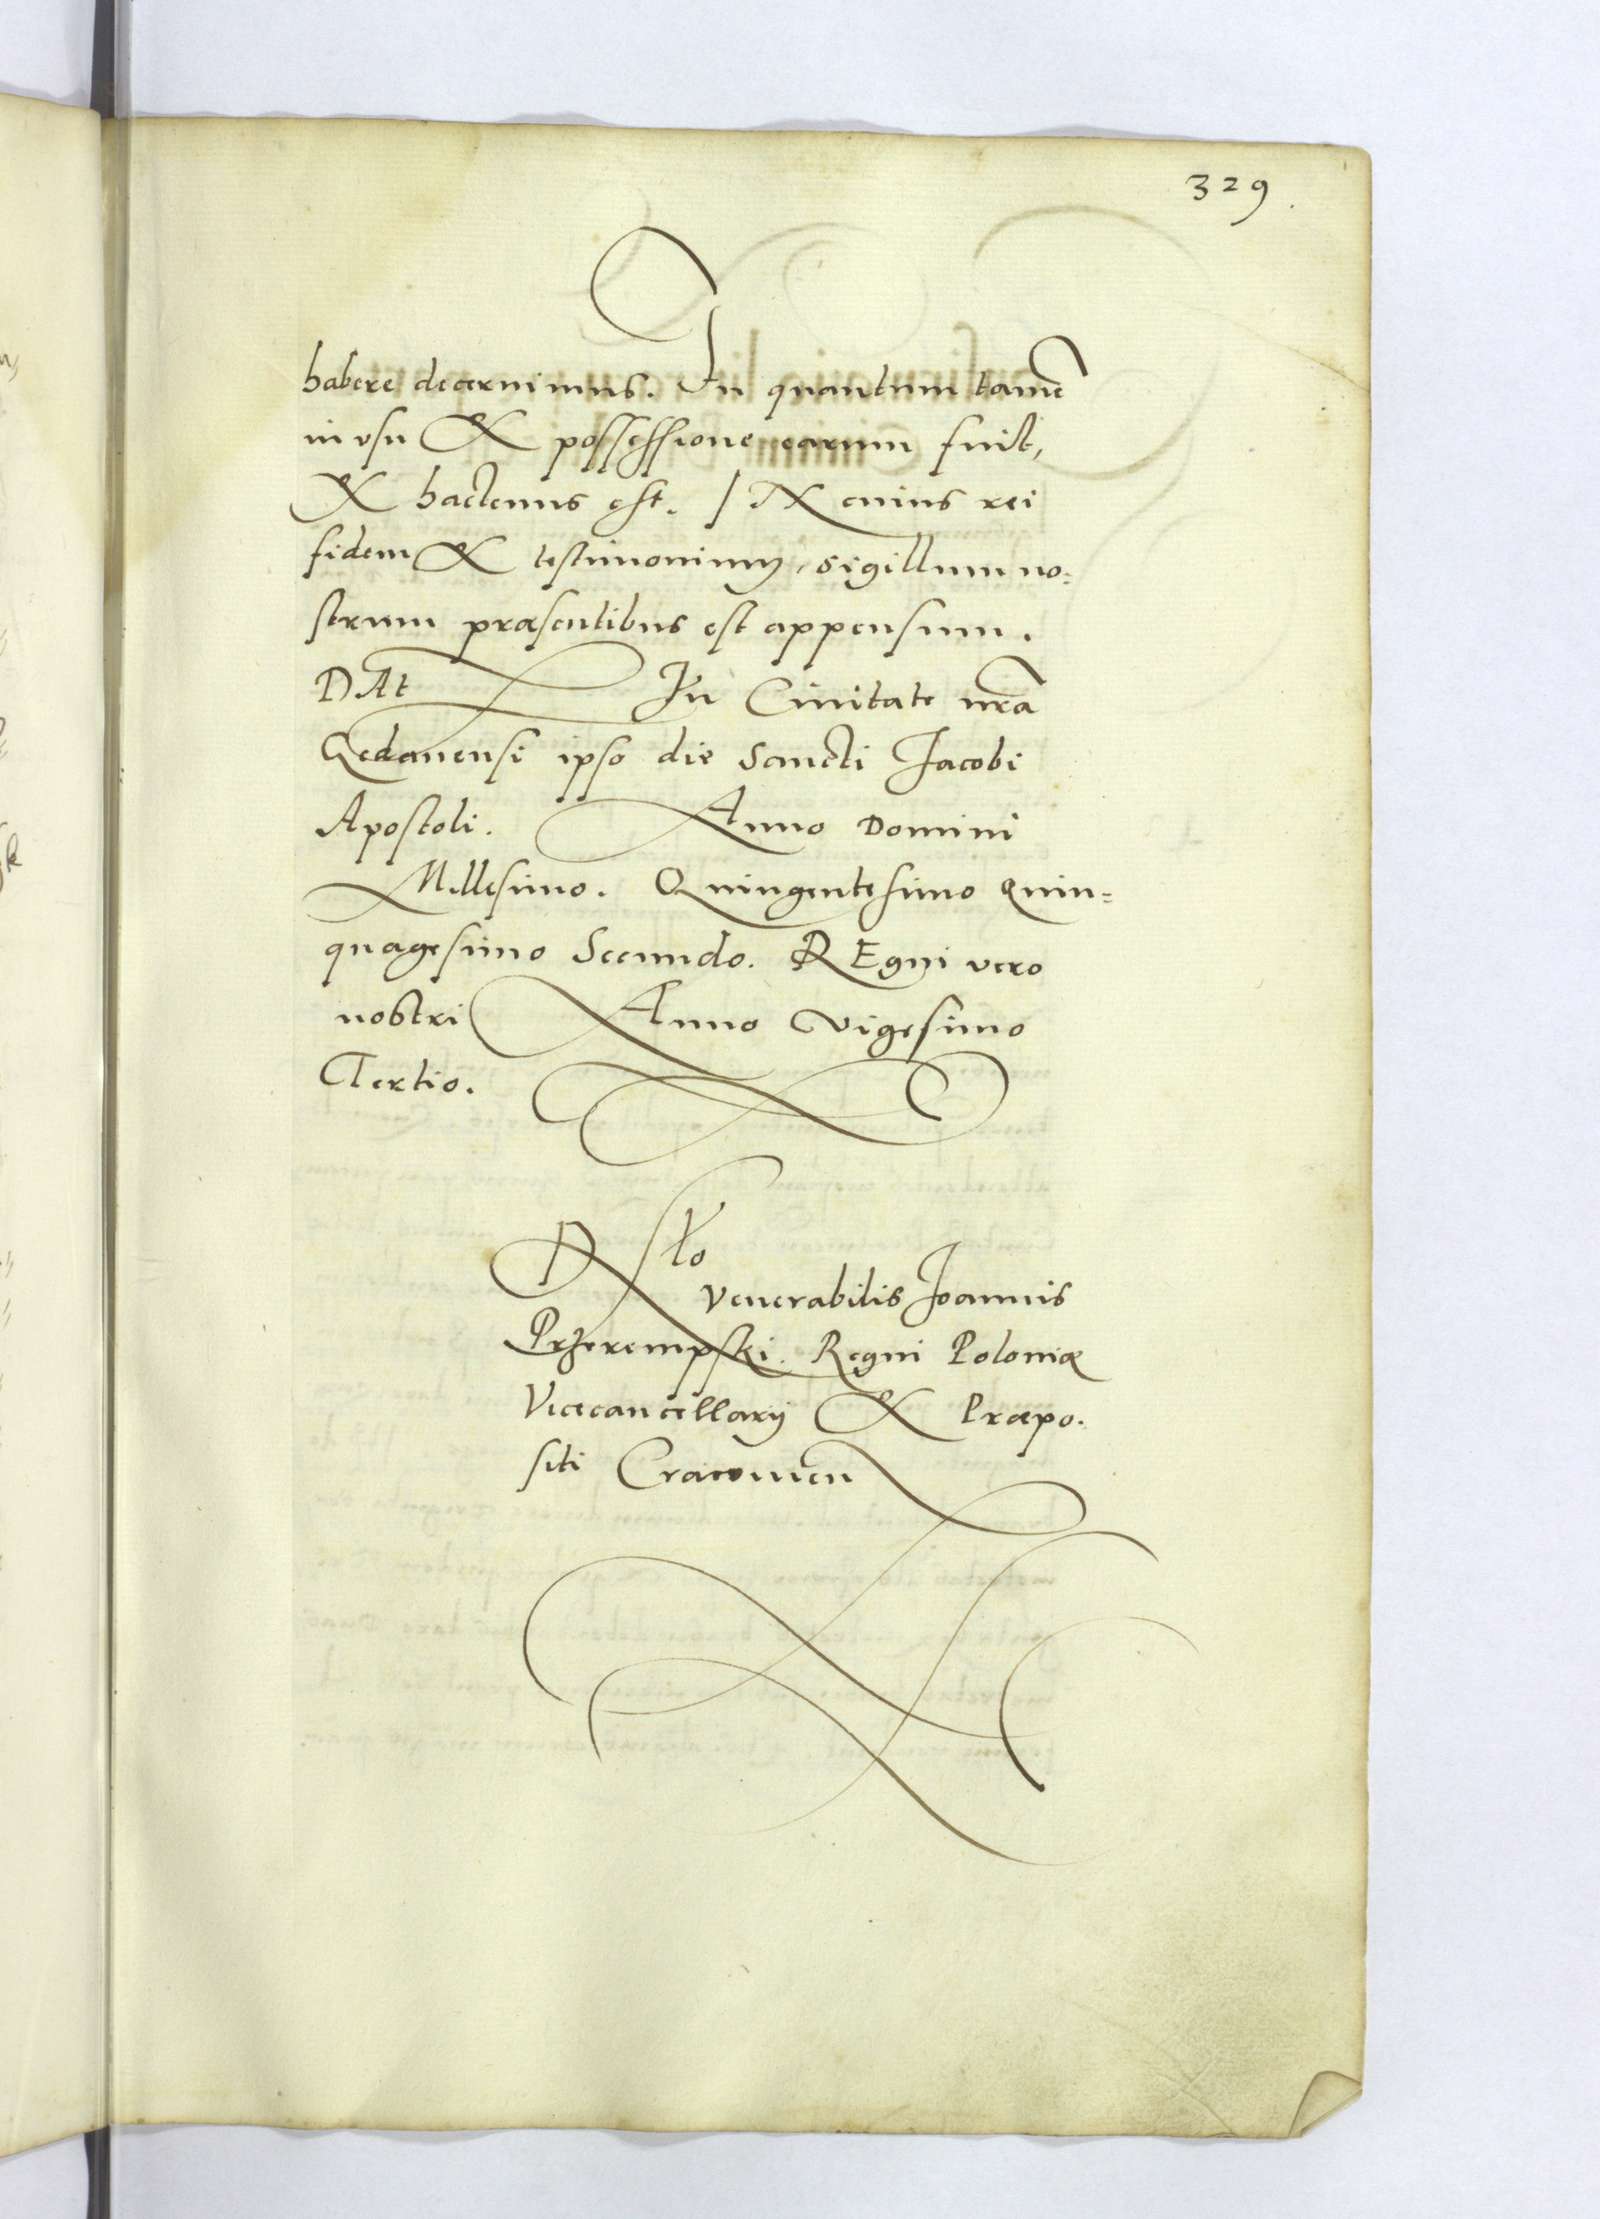 329
habere decernimus. In quantum tamē
in vsu & possessione earum fuit,
& hactenus est. IN cuius rei
fidem & testimonium, sigillum no=
strum præsentibus est appensum.
DAt In Ciuitate nr̄a
Gedanensi ipso die Sancti Jacobi
Apostoli. Anno Domini
Millesimo. Quingentesimo Quin=
quagesimo Secundo. REgni vero
nostri Anno vigesimo
Tertio.
Venerabilis Joannis
Przerempski. Regni Poloniæ
Vicecancellarij & Præpo.
siti Cracouien